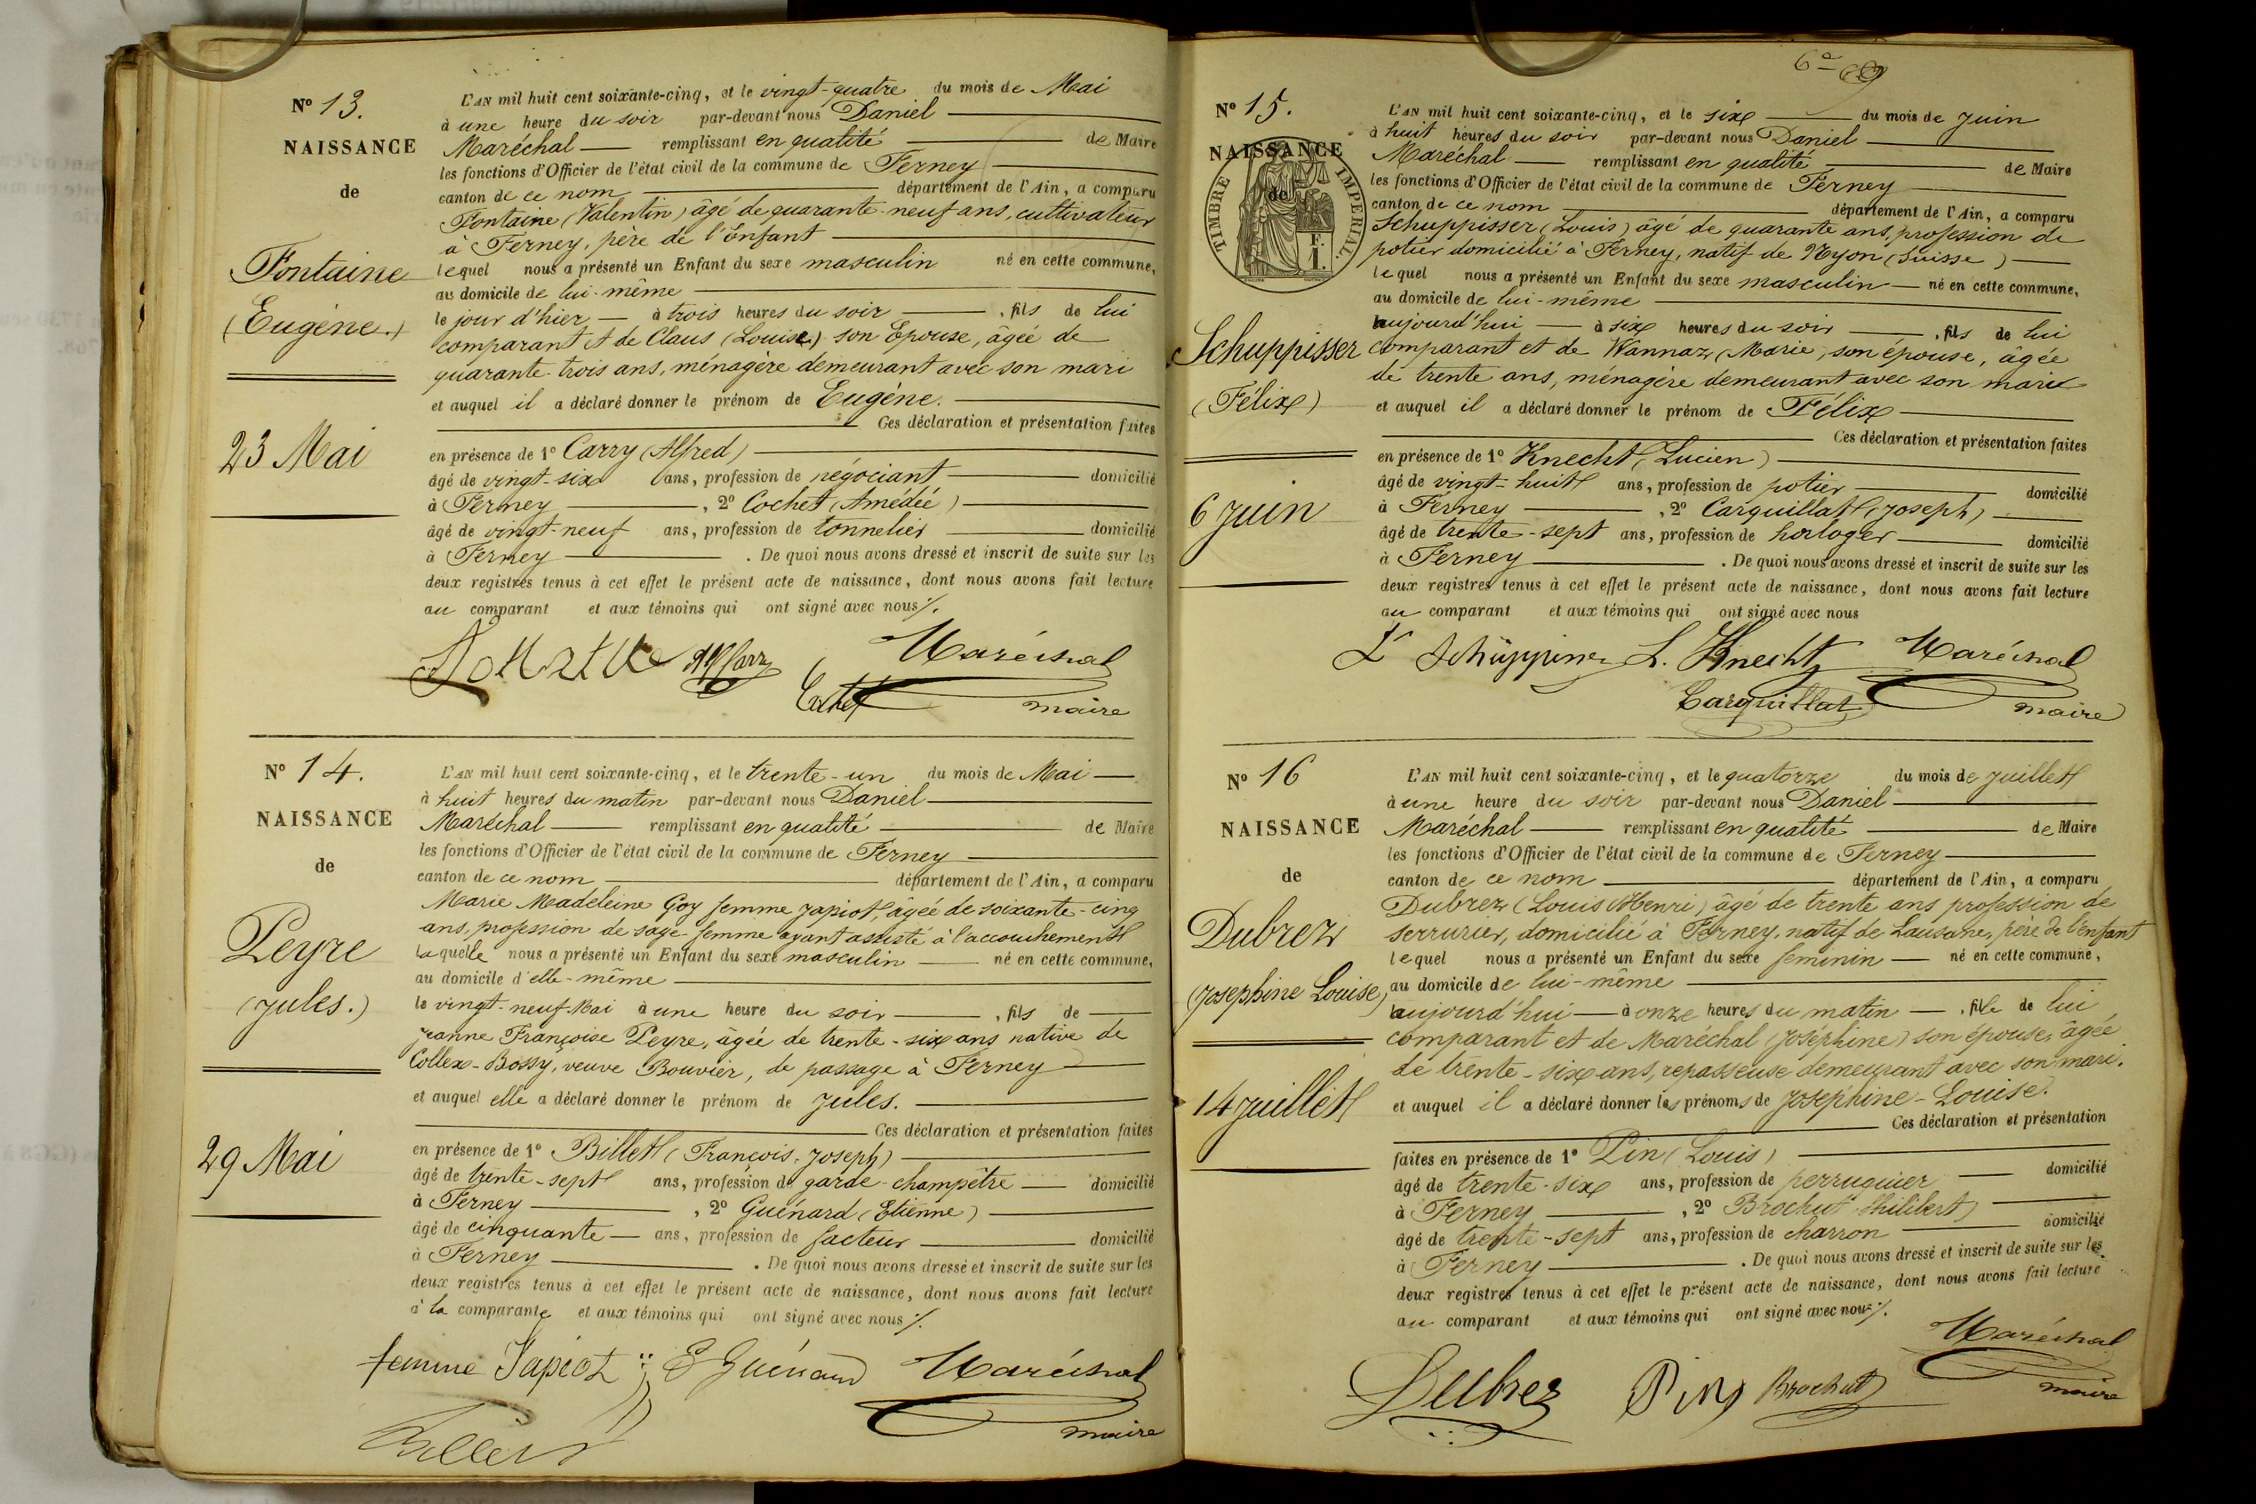 Nº 13.
NAISSANCE
de
Fontaine
(Eugène.)
23 Mai
L'AN mil huit cent soixante-cinq, et le vingt-quatre du mois de Mai
à une heure du soir par-devant nous Daniel
Maréchal remplissant en qualité de Maire
les fonctions d'Officier de l'état civil de la commune de Ferney
canton de ce nom département de l'Ain, a comparu
Fontaine (Valentin) âgé de quarante-neuf ans, cultivateur
à Ferney, père de l'Enfant
lequel nous a présenté un Enfant du sexe masculin né en cette commune,
au domicile de lui-même
le jour d'hier à trois heures du soir, fils de lui
comparant et de Claus (Louise) son Epouse, âgée de
quarante-trois ans, ménagère demeurant avec son mari
et auquel il a déclaré donner le prénom de Eugène.
Ces déclaration et présentation faites
en présence de 1º Carry (Alfred)
âgé de vingt-six ans, profession de négociant domicilié
à Ferney, 2º Cochet (Amédée)
âgé de vingt-neuf ans, profession de tonnelier domicilié
à Ferney. De quoi nous avons dressé et inscrit de suite sur les
deux registres tenus à cet effet le présent acte de naissance, dont nous avons fait lecture
au comparant et aux témoins qui ont signé avec nous ./.
Alf Carry Maréchal
Cochet maire
Nº 14.
NAISSANCE
de
Peyre
(Jules.)
29 Mai
L'AN mil huit cent soixante-cinq, et le trente-un du mois de Mai
à huit heures du matin par-devant nous Daniel
Maréchal remplissant en qualité de Maire
les fonctions d'Officier de l'état civil de la commune de Ferney
canton de ce nom département de l'Ain, a comparu
Marie Madeleine Goy femme Japiot, âgée de soixante-cinq
ans, profession de sage-femme ayant assisté à l'accouchement
laquelle nous a présenté un Enfant du sexe masculin né en cette commune,
au domicile d'elle-même
le vingt-neuf Mai à une heure du soir, fils de
Jeanne Françoise Peyre, âgée de trente-six ans native de
Collex-Bossy, veuve Bouvier, de passage à Ferney
et auquel elle a déclaré donner le prénom de Jules.
Ces déclaration et présentation faites
en présence de 1º Billet (François-Joseph)
âgé de trente-sept ans, profession de garde-champêtre domicilié
à Ferney, 2º Guénard (Etienne)
âgé de cinquante ans, profession de facteur domicilié
à Ferney. De quoi nous avons dressé et inscrit de suite sur les
deux registres tenus à cet effet le présent acte de naissance, dont nous avons fait lecture
à la comparante et aux témoins qui ont signé avec nous ./.
femme Japiot E Guénard Maréchal
Billet maire
Nº 15.
NAISSANCE
de
TIMBRE IMPERIAL
F. 1.
Schuppisser
(Félix)
6 Juin
L'AN mil huit cent soixante-cinq, et le six du mois de Juin
à huit heures du soir par-devant nous Daniel
Maréchal remplissant en qualité de Maire
les fonctions d'Officier de l'état civil de la commune de Ferney
canton de ce nom département de l'Ain, a comparu
Schuppisser (Louis) âgé de quarante ans, profession de
potier domicilié à Ferney, natif de Nyon (Suisse)
lequel nous a présenté un Enfant du sexe masculin né en cette commune,
au domicile de lui-même
aujourd'hui à six heures du soir, fils de lui
comparant et de Wannaz (Marie) son épouse, âgée
de trente ans, ménagère demeurant avec son mari
et auquel il a déclaré donner le prénom de Félix
Ces déclaration et présentation faites
en présence de 1º Knecht (Lucien)
âgé de vingt-huit ans, profession de potier domicilié
à Ferney, 2º Carquillat (Joseph)
âgé de trente-sept ans, profession de horloger domicilié
à Ferney. De quoi nous avons dressé et inscrit de suite sur les
deux registres tenus à cet effet le présent acte de naissance, dont nous avons fait lecture
au comparant et aux témoins qui ont signé avec nous
L. Knecht Maréchal
Carquillat maire
Nº 16
NAISSANCE
de
Dubrez
(Josephine Louise)
14 Juillet
L'AN mil huit cent soixante-cinq, et le quatorze du mois de Juillet
à une heure du soir par-devant nous Daniel
Maréchal remplissant en qualité de Maire
les fonctions d'Officier de l'état civil de la commune de Ferney
canton de ce nom département de l'Ain, a comparu
Dubrez (Louis Henri) âgé de trente ans profession de
serrurier, domicilié à Ferney, natif de Lausane, père de l'enfant
lequel nous a présenté un Enfant du sexe feminin né en cette commune,
au domicile de lui-même
aujourd'hui à onze heures du matin, fille de lui
comparant et de Maréchal (Joséphine) son épouse, âgée
de trente-six ans, repasseuse demeurant avec son mari.
et auquel il a déclaré donner les prénoms de Joséphine-Louise.
Ces déclaration et présentation
faites en présence de 1º Pin (Louis)
âgé de trente-six ans, profession de perruquier domicilié
à Ferney, 2º Brochut (Philibert)
âgé de trente-sept ans, profession de charron domicilié
à Ferney. De quoi nous avons dressé et inscrit de suite sur les
deux registres tenus à cet effet le présent acte de naissance, dont nous avons fait lecture
au comparant et aux témoins qui ont signé avec nous ./.
Dubrez Pin Brochut Maréchal
maire